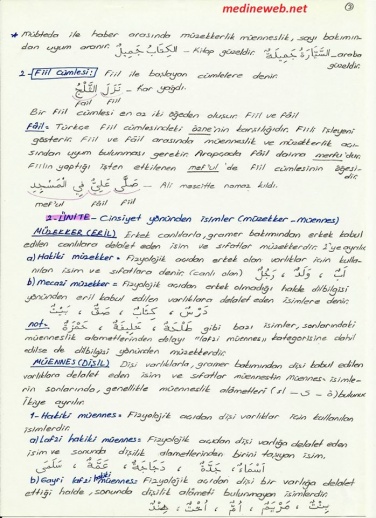 medineweb.net
③
* Mübteda ile haber arasında müzekkerlik müenneslik, sayı bakımın-
dan uyum aranır. الكِتَابُ جَمِيلٌ - Kitap güzeldir. السَّيَّارَةُ جَمِيلَةٌ - araba
güzeldir.
2- Fiil cümlesi: Fiil ile başlayan cümlelere denir.
نَزَلَ الثَّلْجُ - Kar yağdı.
Fâil Fiil
Bir Fiil cümlesi en az iki öğeden oluşur. Fiil ve Fâil
Fâil= Türkçe Fiil cümlesindeki özne'nin karşılığıdır. Fiili işleyeni
gösterir. Fiil ve Fâil arasında müenneslik ve müzekkerlik açı-
sından uyum bulunması gerekir. Arapçada Fâil daima merfu'dur.
Fiilin yaptığı işten etkilenen mef'ul 'de Fiil cümlesinin öğesi-
dir.
صَلَّى عَلِيٌّ فِي الْمَسْجِدِ - Ali mescitte namaz kıldı.
mef'ul Fâil Fiil
2. ÜNİTE - Cinsiyet yönünden isimler (müzekker - müennes)
MÜZEKKER (ERİL) Erkek canlılarla, gramer bakımından erkek kabul
edilen canlılara delalet eden isim ve sıfatlar müzekkerdir. 2'ye ayrılır
a) Hakiki müzekker= Fizyolojik açıdan erkek olan varlıklar için kulla-
nılan isim ve sıfatlara denir. (canlı olan) أَبٌ ، وَلَدٌ ، رَجُلٌ
b) Mecazi müzekker= Fizyolojik açıdan erkek olmadığı halde dilbilgisi
yönünden eril kabul edilen varlıklara delalet eden isimlere denir.
دَرْسٌ ، كِتَابٌ ، صَفٌّ ، بَيْتٌ
not= طَلْحَةُ ، خَلِيفَةٌ ، حَمْزَةُ gibi bazı isimler, sonlarındaki
müenneslik alametlerinden dolayı "lafzi müennes" kategorisine dahil
edilse de dilbilgisi yönünden müzekkerdir.
MÜENNES (DİŞİL) Dişi varlıklarla, gramer bakımından dişi kabul edilen
varlıklara delalet eden isim ve sıfatlar müennestir. Müennes isimle-
rin sonlarında, genellikle müenneslik alâmetleri (ة - ى - اء) bulunur.
İkiye ayrılır.
1- Hakiki müennes= Fizyolojik açıdan dişi varlıklar için kullanılan
isimlerdir.
a) Lafzi hakiki müennes= Fizyolojik açıdan dişi varlığa delalet eden
isim ve sonunda dişilik alametlerinden birini taşıyan isim.
أَسْمَاءُ ، جَدَّةٌ ، دَجَاجَةٌ ، عَمَّةٌ ، سَلْمَى
b) Gayri lafzi hakiki müennes= Fizyolojik açıdan dişi bir varlığa delalet
ettiği halde, sonunda dişilik alâmeti bulunmayan isimlerdir.
بِنْتٌ ، مَرْيَمُ ، أُمٌّ ، أُخْتٌ ، هِنْدٌ